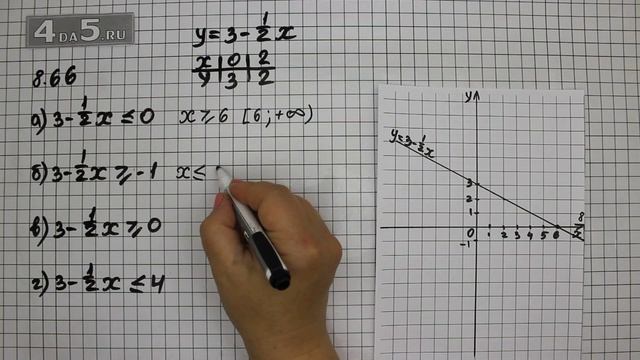 4DA5.RU
y=3-½x
x 0 2
y 3 2
8.66
а) 3-½x ≤ 0 x ≥ 6 [6; +∞)
б) 3-½x ≥ -1 x ≤
в) 3-½x ≥ 0
г) 3-½x ≤ 4
y
y=3-½x
3
2
1
0 1 2 3 4 5 6
8
-1